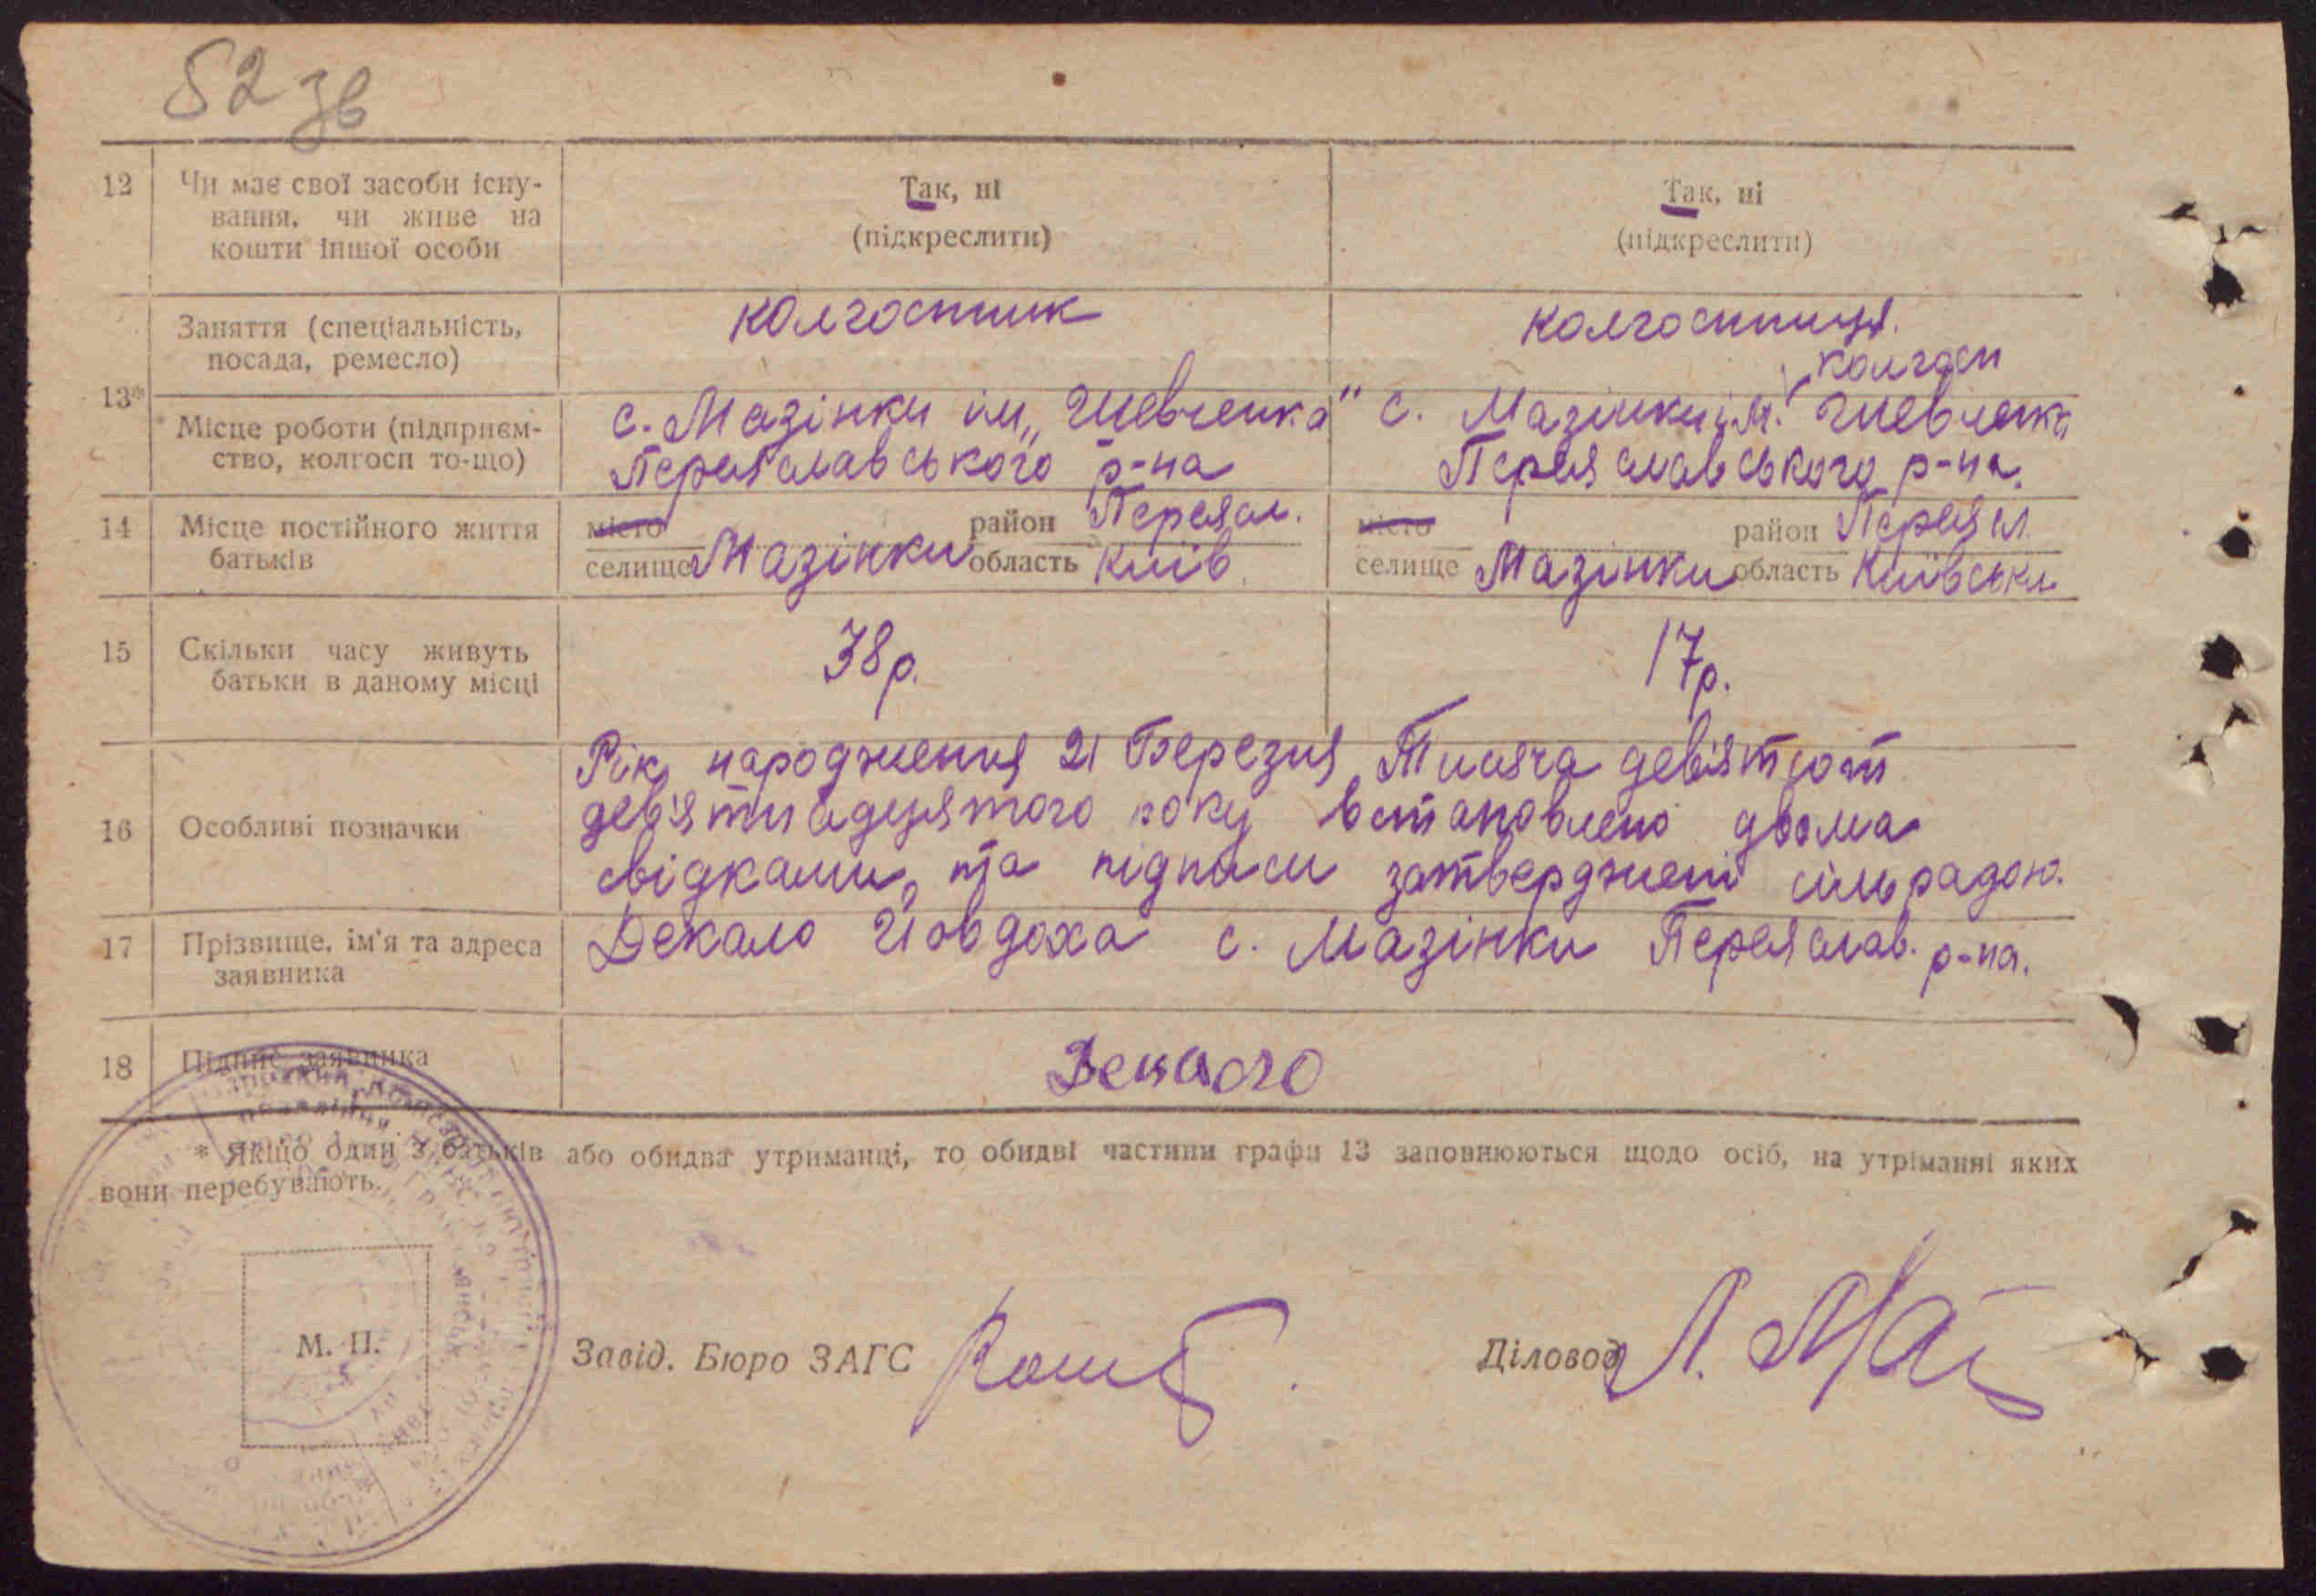 52 зв
12 Чи має свої засоби існу-
вання, чи живе на
кошти іншої особи
Так, ні
(підкреслити)
Так, ні
(підкреслити)
13*
Заняття (спеціальність,
посада, ремесло)
колгоспник
колгоспниця.
Місце роботи (підприєм-
ство, колгосп то-що)
с. Мазінки ім. „Шевченка"
Переяславського р-на
колгосп
с. Мазінки ім. Шевченка
Переяславського р-на.
14 Місце постійного життя
батьків
місто
селище Мазінки
район Переясл.
область Київ.
місто
селище Мазінки
район Переясл.
область Київська
15 Скільки часу живуть
батьки в даному місці
38 р.
17 р.
16 Особливі позначки
Рік народження 21 Березня Тисяча девятсот
дев'ятнадцятого року встановлено двома
свідками, та підписи затверджені сільрадою.
17 Прізвище, ім'я та адреса
заявника
Декало Йовдоха с. Мазінки Переяслав. р-на.
18 Підпис заявника
Декало
* Якщо один з батьків або обидва утриманці, то обидві частини графи 13 заповнюються щодо осіб, на утріманні яких
вони перебувають.
М. П.
Завід. Бюро ЗАГС
Діловод